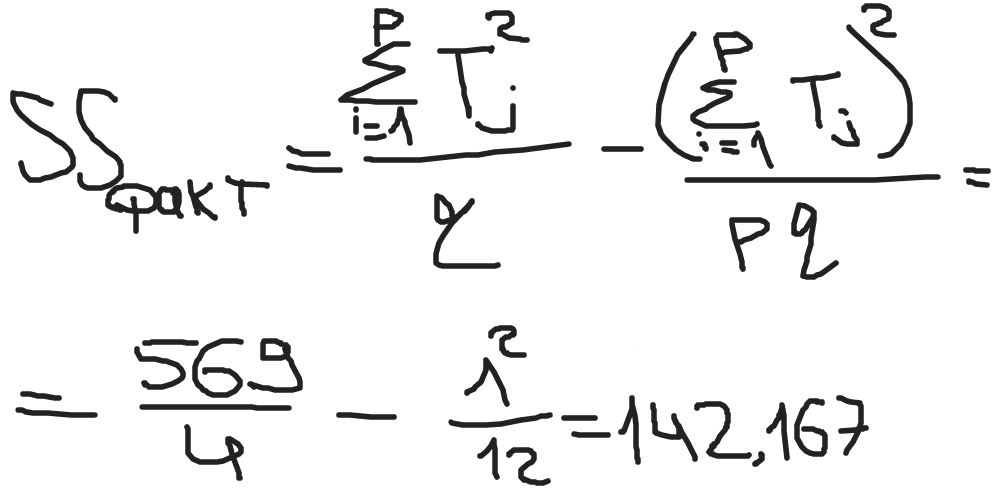 SS_факт = \frac{\sum_{i=1}^{p} T_j^2}{q} - \frac{(\sum_{i=1}^{p} T_j)^2}{pq} =
= \frac{569}{4} - \frac{1^2}{12} = 142,167